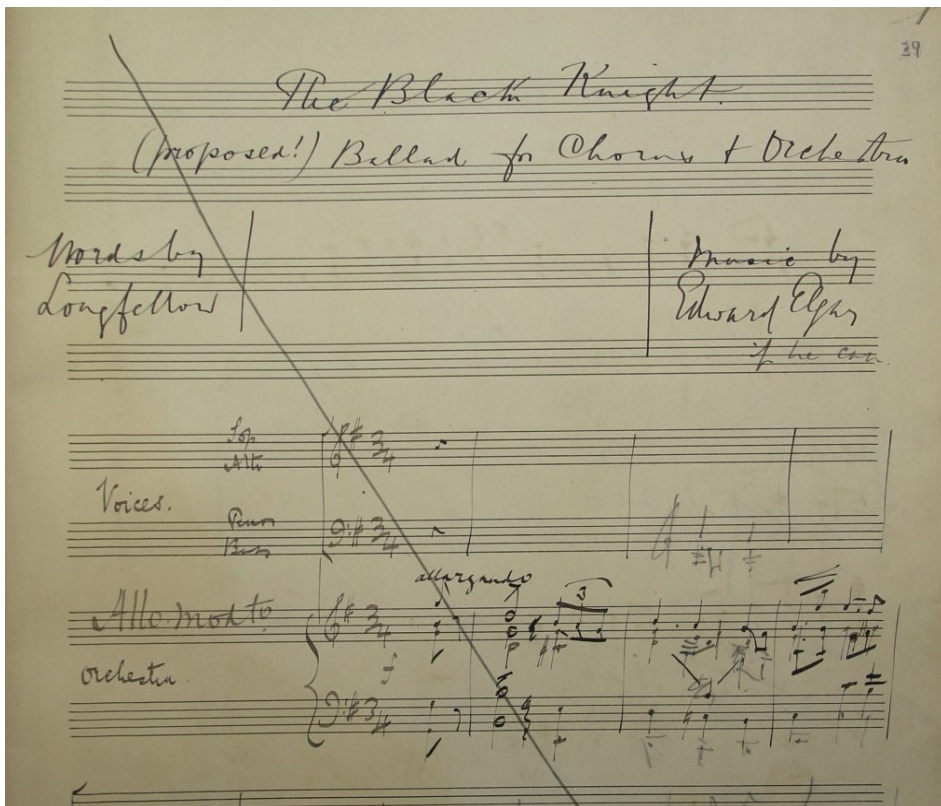 39
The Black Knight.
(proposed!) Ballad for Chorus & Orchestra
Words by
Longfellow
Music by
Edward Elgar
if he can
Sop
Alto
Voices.
Tenor
Bass
3/4
3/4
allargando
3
Allo. modto.
3/4
f
Orchestra.
3/4